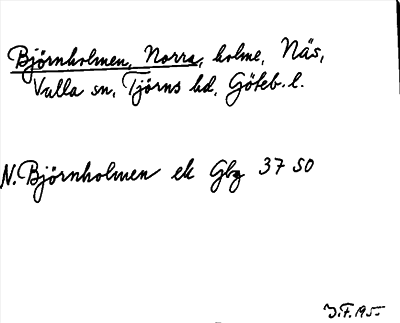 Björnholmen, Norra, holme, Näs,
Valla sn, Tjörns hd, Göteb. l.
N. Björnholmen ek Gbg 37 SO
J.F. 1955